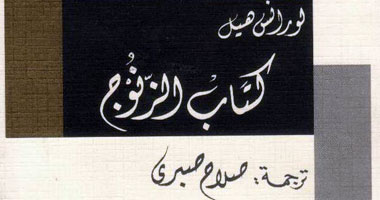 لورانس هيل
كتاب الزنوج
ترجمة: صلاح صبرى